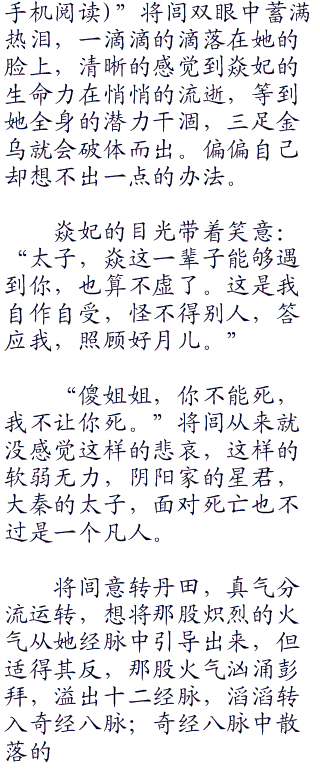 手机阅读)”将闾双眼中蓄满
热泪，一滴滴的滴落在她的
脸上，清晰的感觉到焱妃的
生命力在悄悄的流逝，等到
她全身的潜力干涸，三足金
乌就会破体而出。偏偏自己
却想不出一点的办法。
焱妃的目光带着笑意：
“太子，焱这一辈子能够遇
到你，也算不虚了。这是我
自作自受，怪不得别人，答
应我，照顾好月儿。”
“傻姐姐，你不能死，
我不让你死。”将闾从来就
没感觉这样的悲哀，这样的
软弱无力，阴阳家的星君，
大秦的太子，面对死亡也不
过是一个凡人。
将闾意转丹田，真气分
流运转，想将那股炽烈的火
气从她经脉中引导出来，但
适得其反，那股火气汹涌彭
拜，溢出十二经脉，滔滔转
入奇经八脉；奇经八脉中散
落的